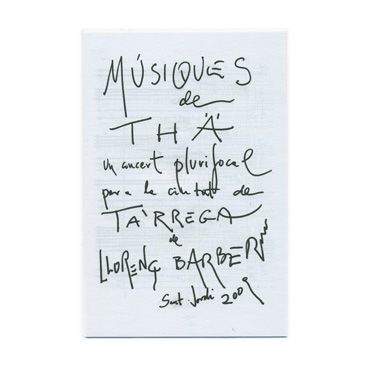 MÚSIQUES
de
THÄ
Un concert plurifocal
per a la ciutat de
TÀRREGA
de
LLORENÇ BARBER
Sant Jordi 2009